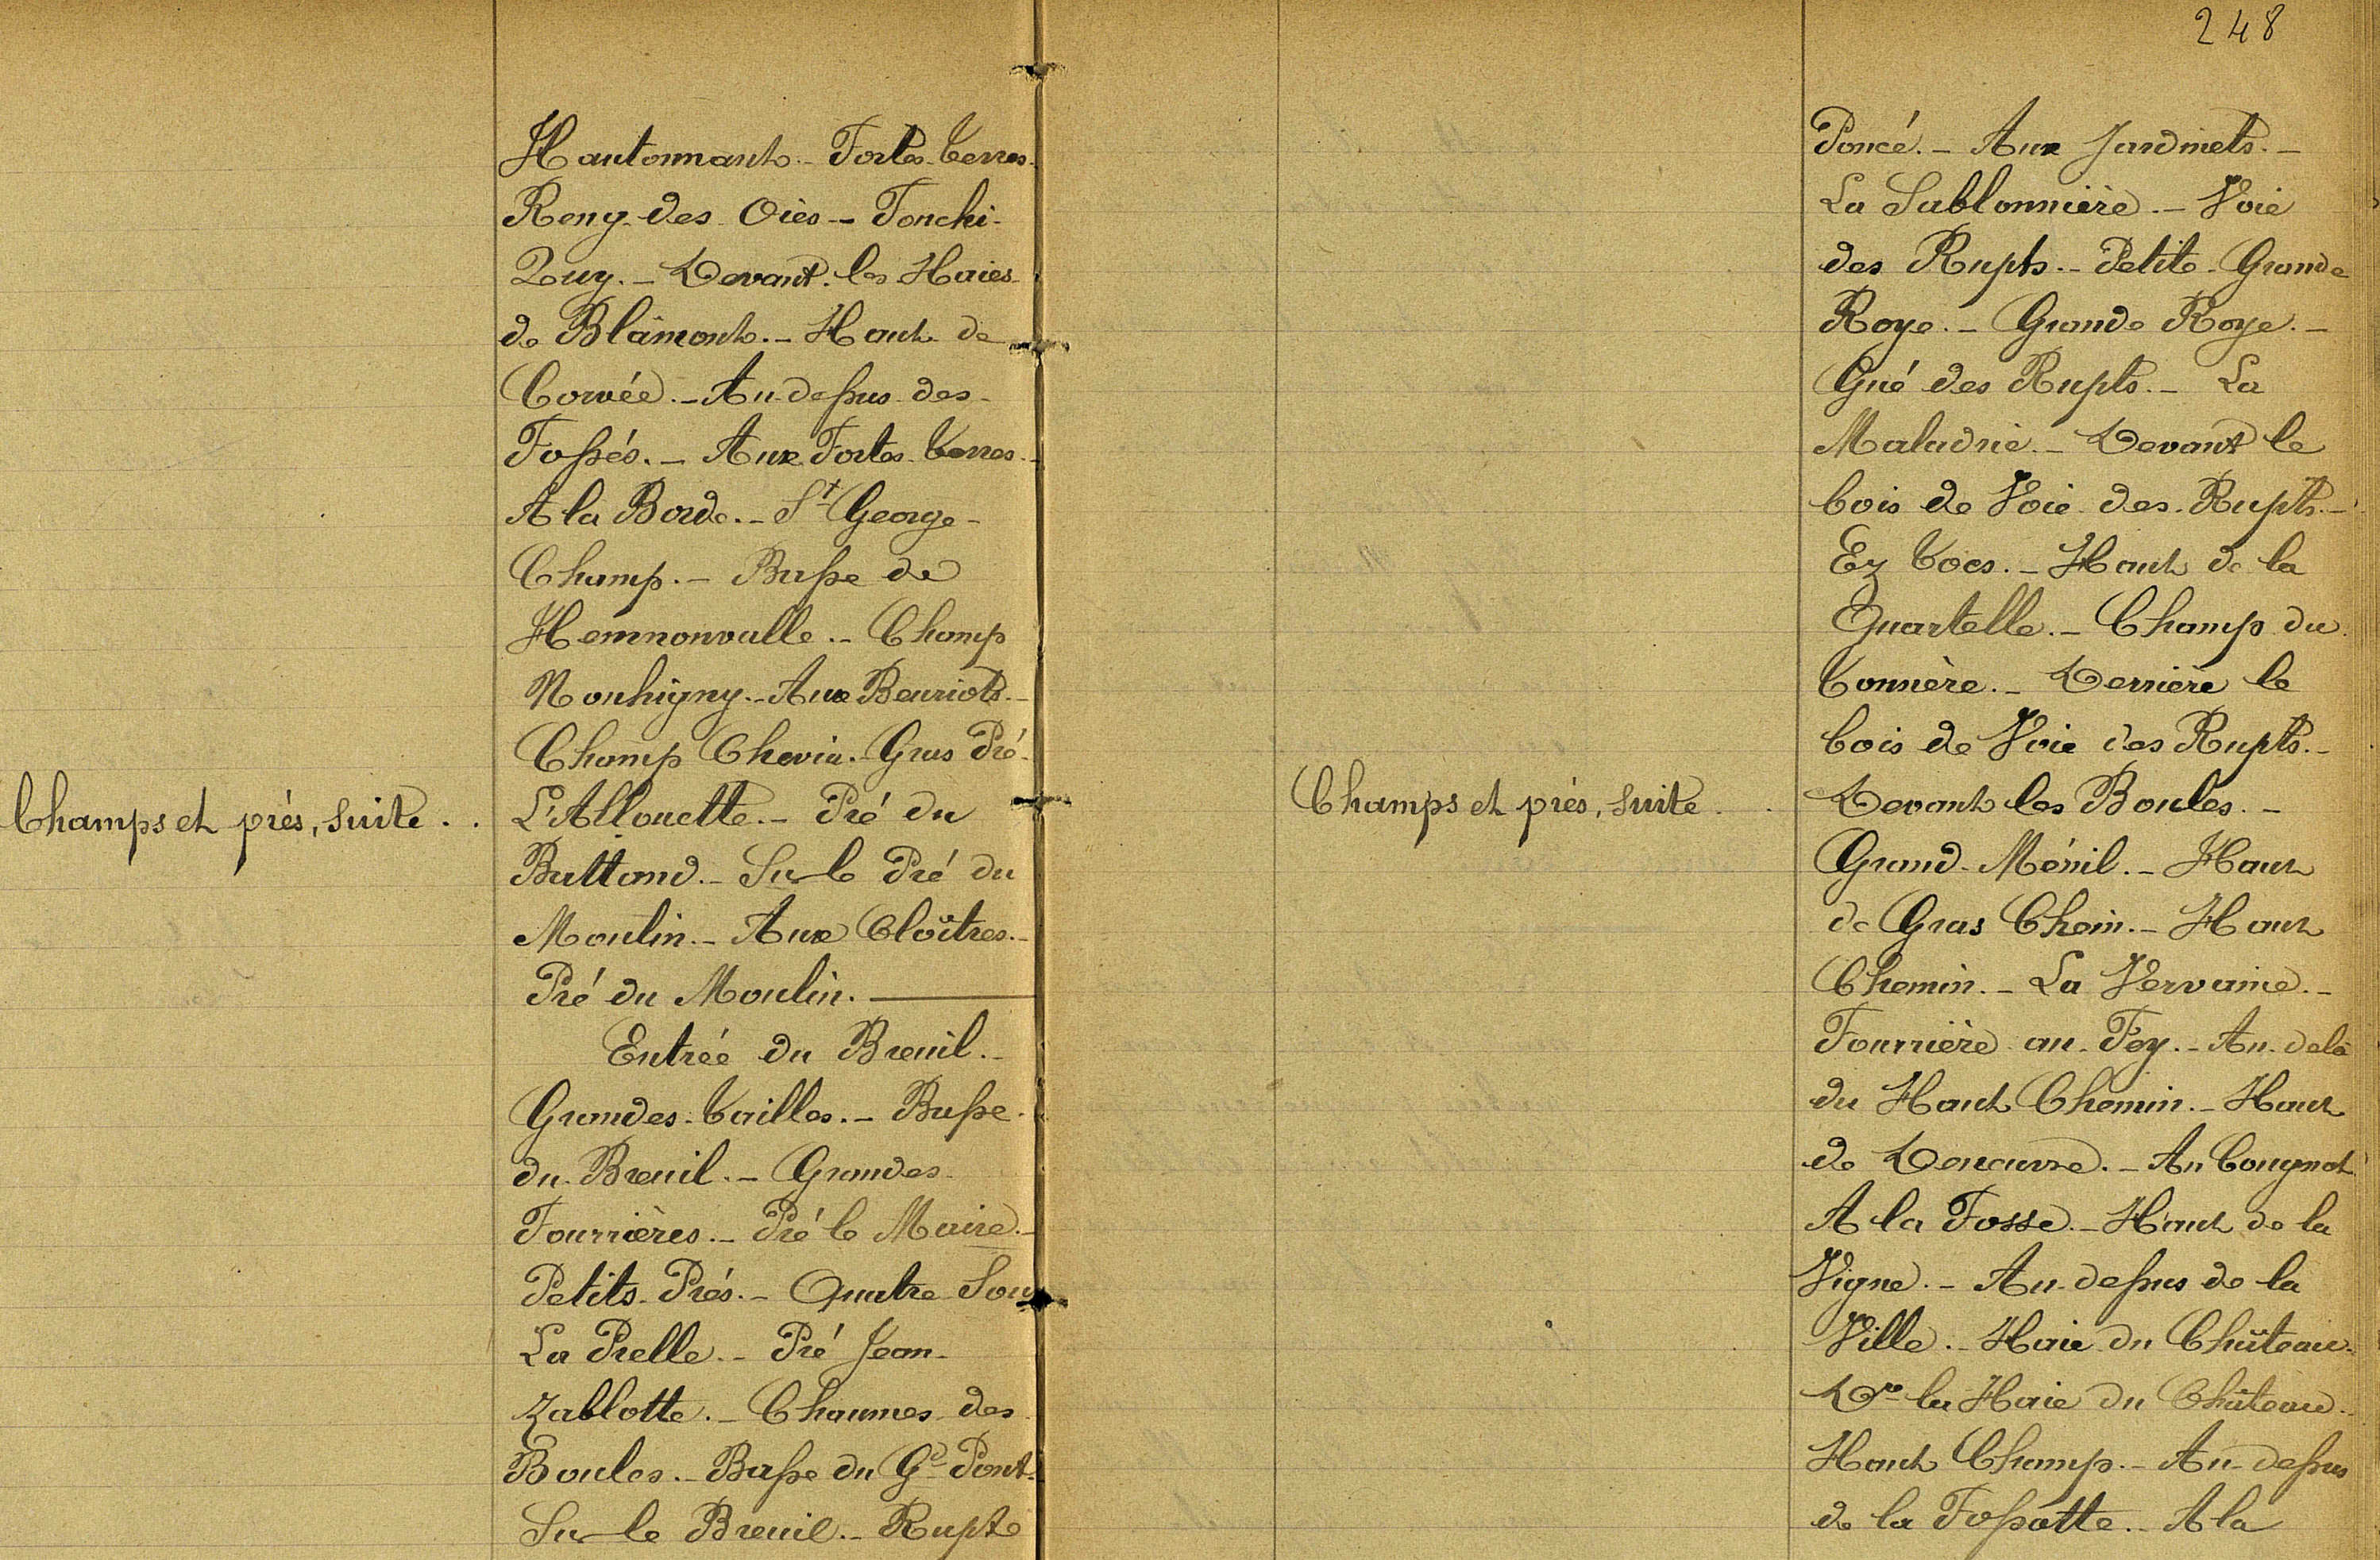 Hautonnant. - Fortes-Terres.
Reny-des-Oies - Fonchi-
Quy. - Devant-les-Haies-
de Blâmont. - Haut de
Corvée. - Au-dessus-des-
Fossés. - Aux Fortes-Terres. -
A la Borde. - St George-
Champ. - Basse de
Hemnonvalle. - Champ
Nonhigny. - Aux Beuriots. -
Champ Chevin. - Gras Pré -
Champs et prés, suite . .
L'Allouette. - Pré du
Battand. - Sur le Pré du
Moulin. - Aux Cloîtres. -
Pré du Moulin. -
Entrée du Breuil. -
Grandes-Tailles. - Basse-
du-Breuil. - Grandes-
Fourrières. - Pré le Maire. -
Petits-Prés. - Quatre-Sous
La Prelle. - Pré Jean-
Zablotte. - Chaumes-des
Boules. - Basse du Gd Pont.
Sur le Breuil. - Rupt
248
Poncé. - Aux Jardinets. -
La Sablonnière. - Voie
des Rupts. - Petite-Grande
Roye. - Grande Roye. -
Gué des Rupts. - La
Maladrie. - Devant le
bois de Voie des Rupts. -
Ez Tocs. - Haut de la
Quartelle. - Champ du
Tonnère. - Derrière le
bois de Voie des Rupts. -
Champs et prés, suite . .
Devant les Boules. -
Grand-Ménil. - Haut
de Gras Chein. - Haut
Chemin. - La Vervaine. -
Fourrière au-Fey. - Au-delà
du Haut Chemin. - Haut
de Deneuvre. - Au Cougnot
A la Fosse. - Haut de la
Vigne. - Au-dessus de la
Ville. - Haie du Château.
Dre la Haie du Château. -
Haut Champ. - Au-dessus
de la Fossotte. - A la